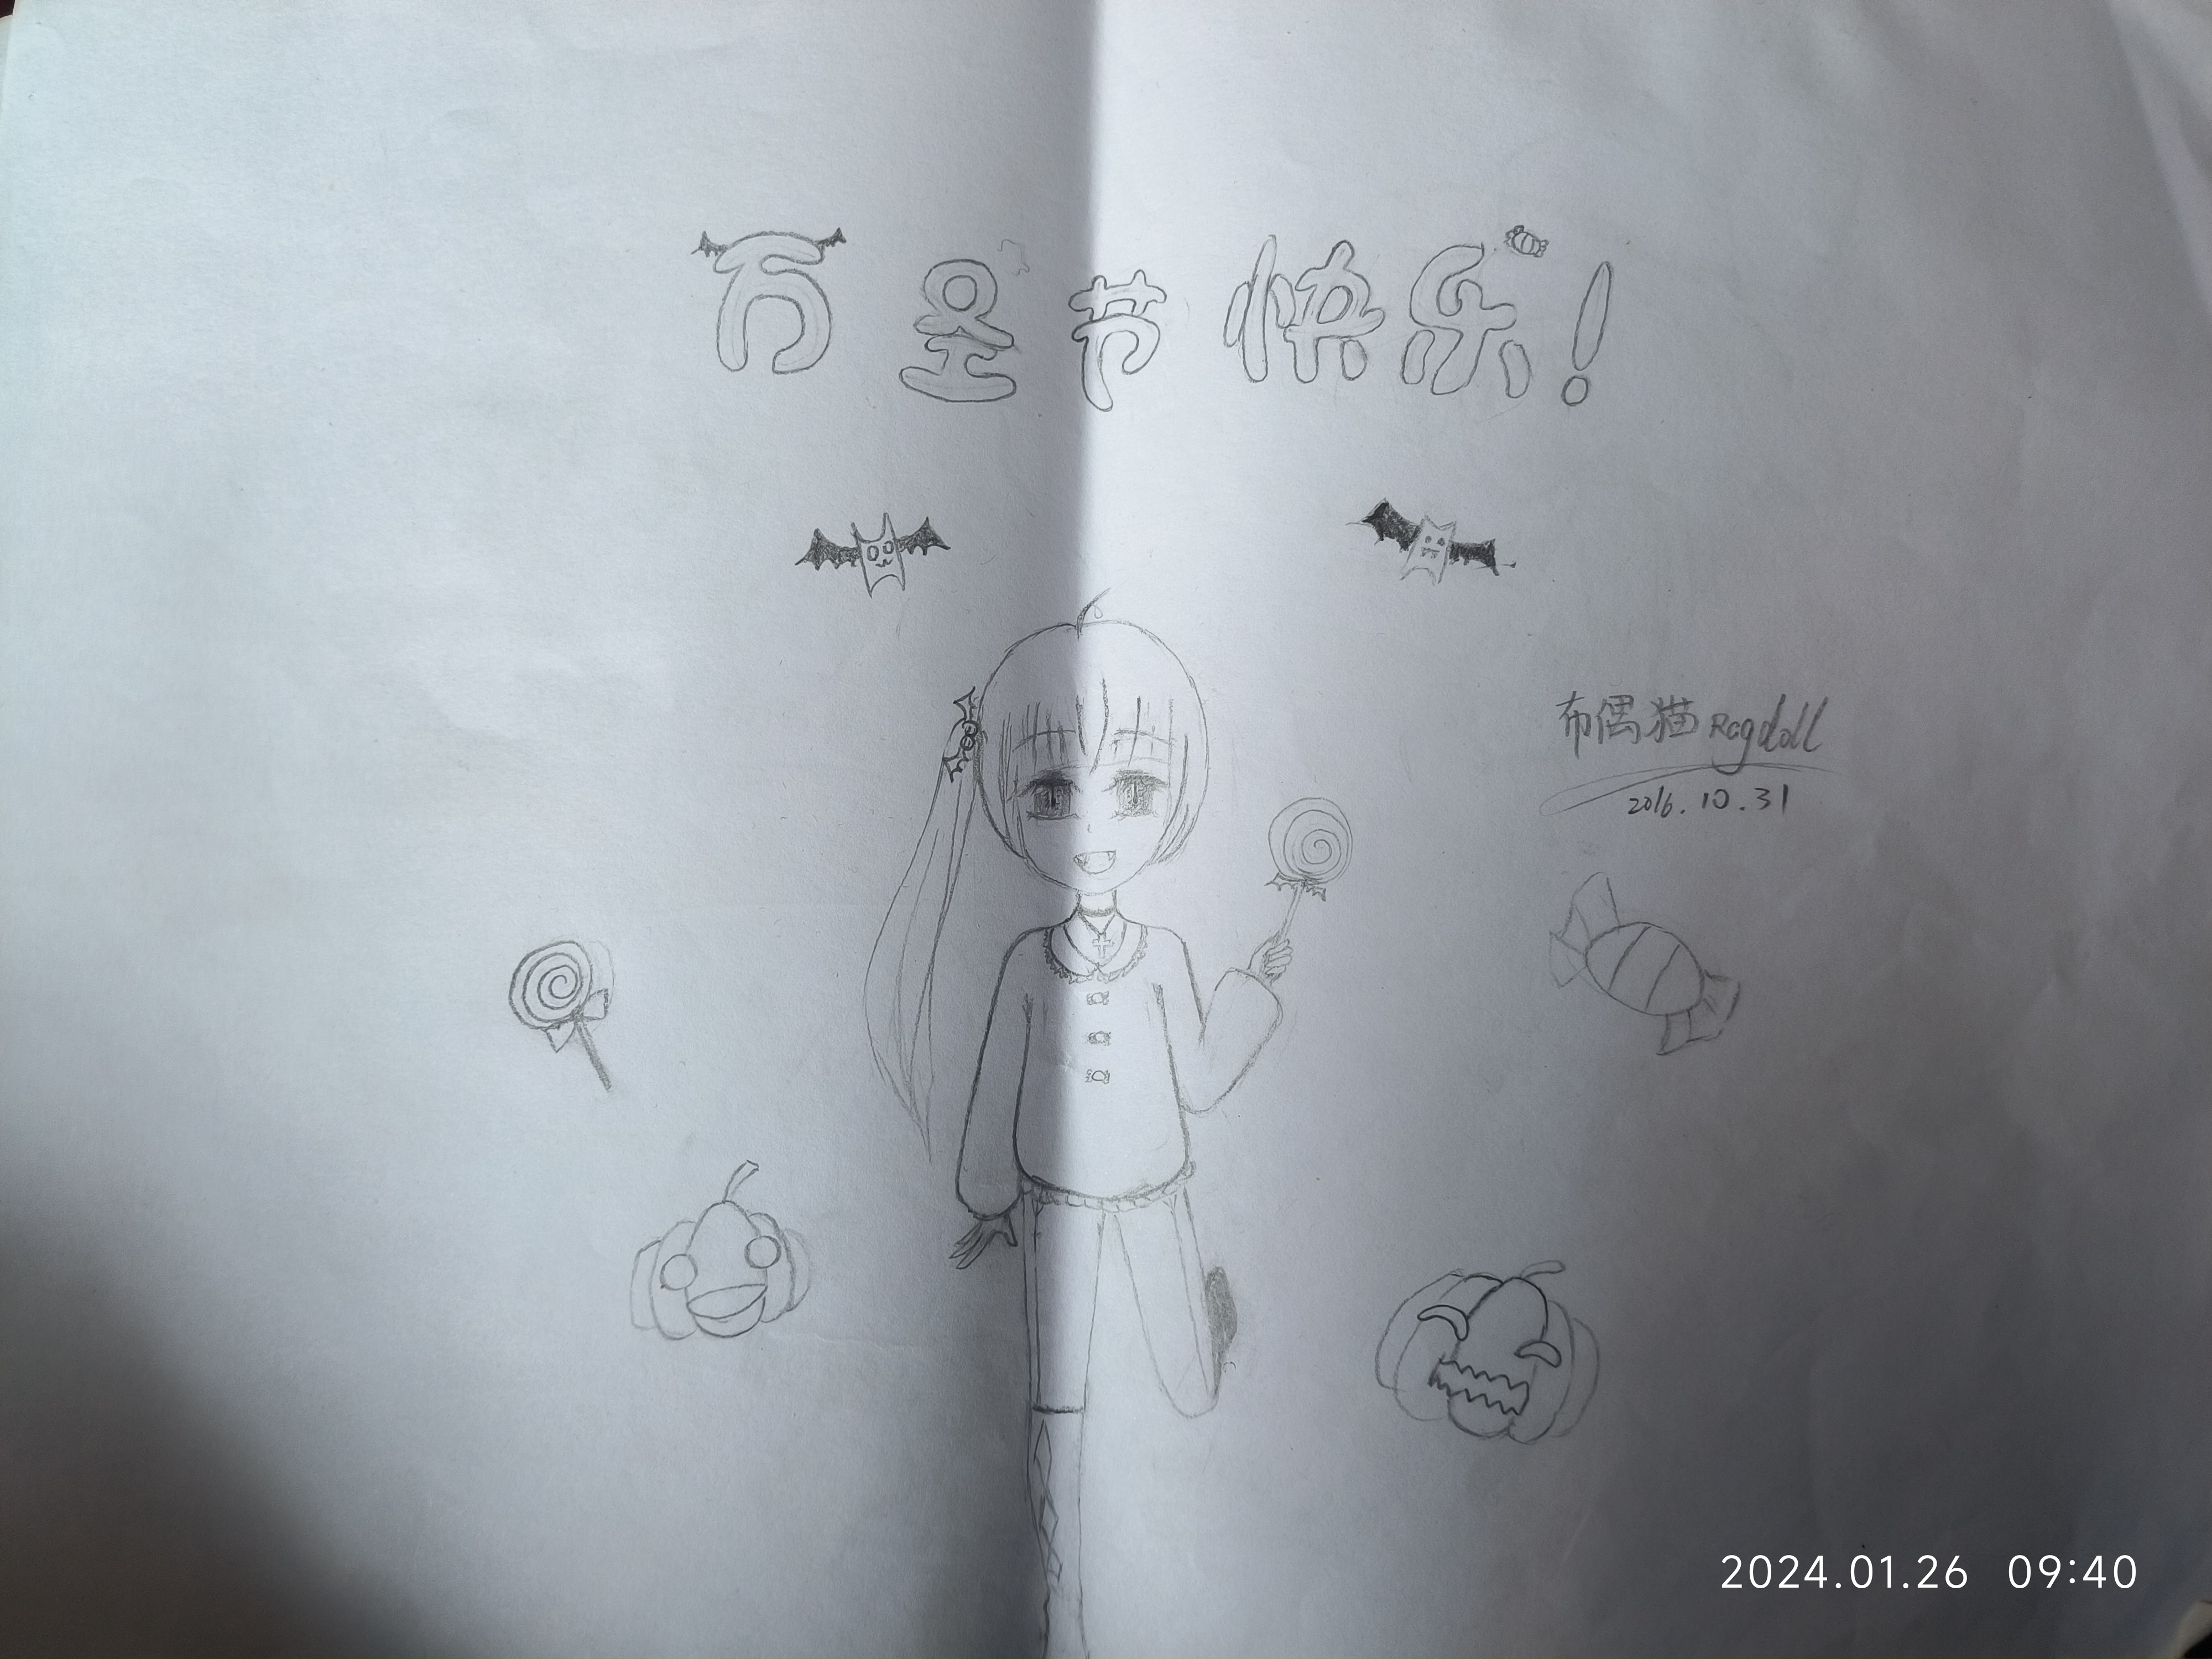 万圣节快乐!
布偶猫 Ragdoll
2016.10.31
2024.01.26 09:40